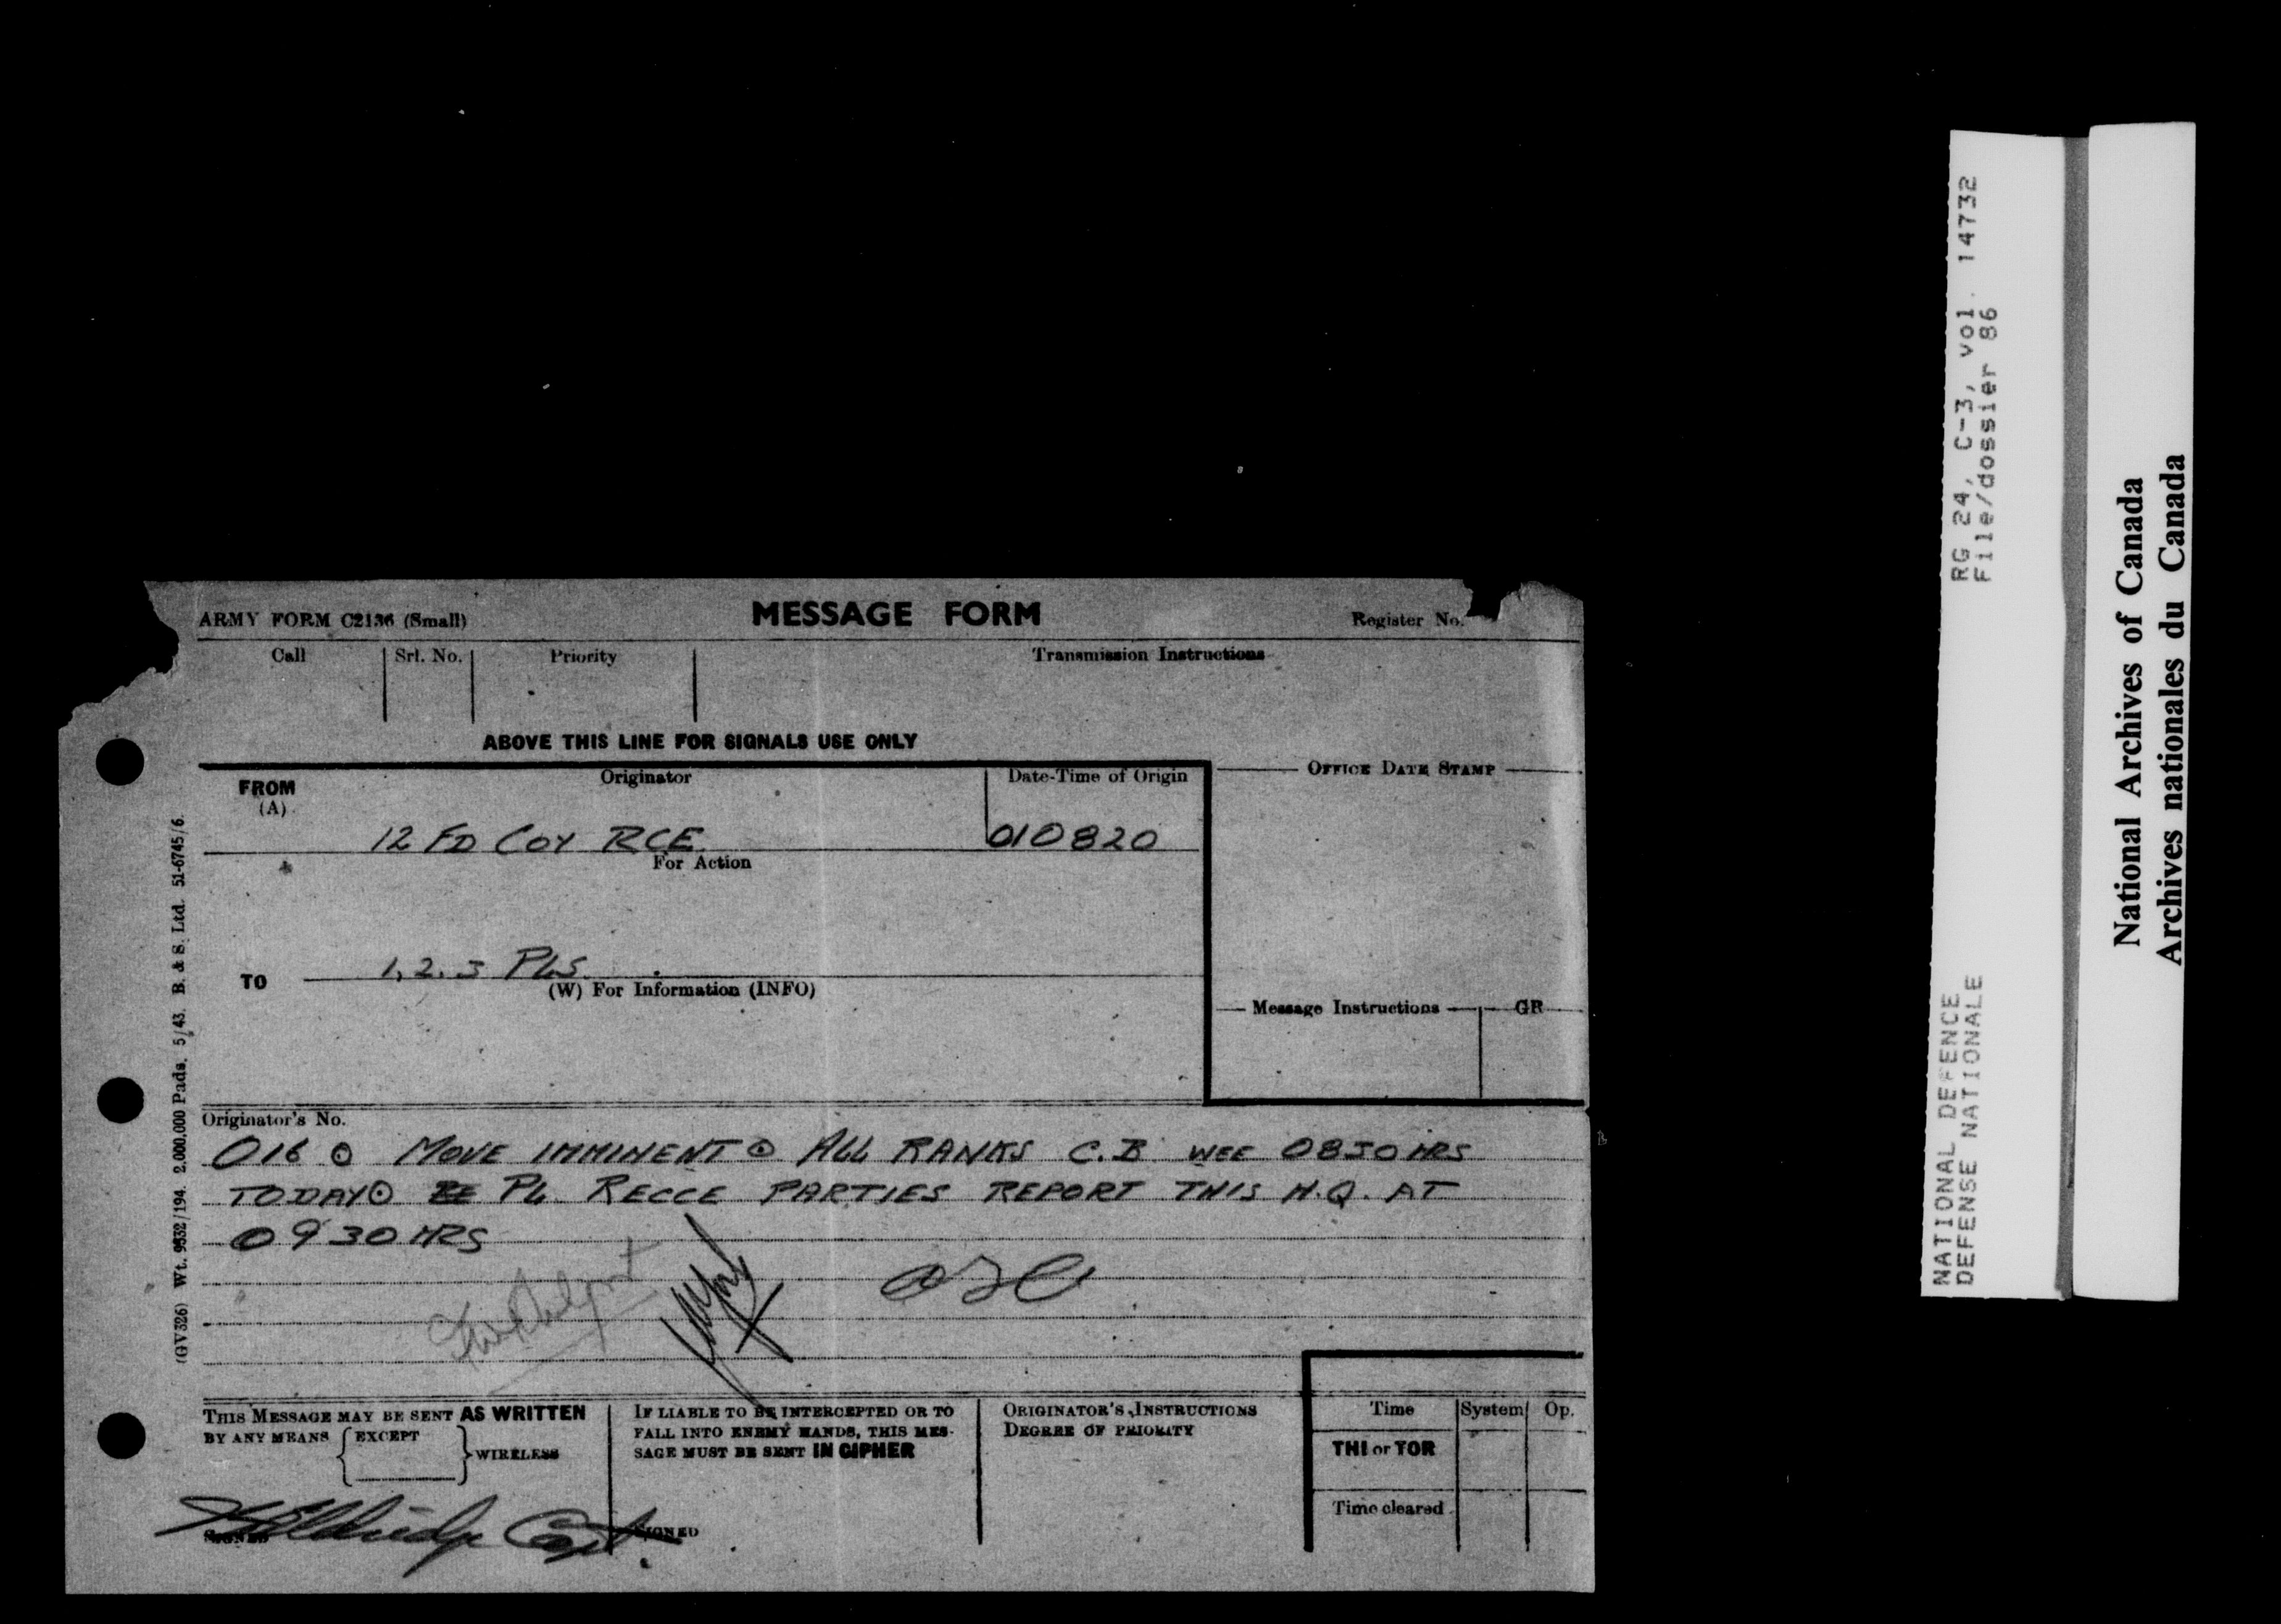 ARMY FORM C2136 (Small)
MESSAGE FORM
Register No.
Call
Srl. No.
Priority
Transmission Instructions
ABOVE THIS LINE FOR SIGNALS USE ONLY
FROM
(A)
Originator
Date-Time of Origin
OFFICE DATE STAMP
12 FD COY RCE
010820
For Action
TO
1, 2. 3 PLS.
(W) For Information (INFO)
Message Instructions
GR
Originator's No.
016 ⊙ MOVE IMMINENT ⊙ ALL RANKS C.B WEF 0830 HRS
TODAY ⊙ PL. RECCE PARTIES REPORT THIS H.Q. AT
0930 HRS
THIS MESSAGE MAY BE SENT AS WRITTEN
BY ANY MEANS { EXCEPT } WIRELESS
SIGNED
Capt.
IF LIABLE TO BE INTERCEPTED OR TO
FALL INTO ENEMY HANDS, THIS MES-
SAGE MUST BE SENT IN CIPHER
SIGNED
ORIGINATOR'S INSTRUCTIONS
DEGREE OF PRIORITY
Time
System
Op.
THI or TOR
Time cleared
(GV326) Wt. 9532/194. 2,000,000 Pads. 5/43. B. & S. Ltd. 51-6745/6.
NATIONAL DEFENCE
DEFENSE NATIONALE
RG 24, C-3, vol. 14732
File/dossier 86
National Archives of Canada
Archives nationales du Canada